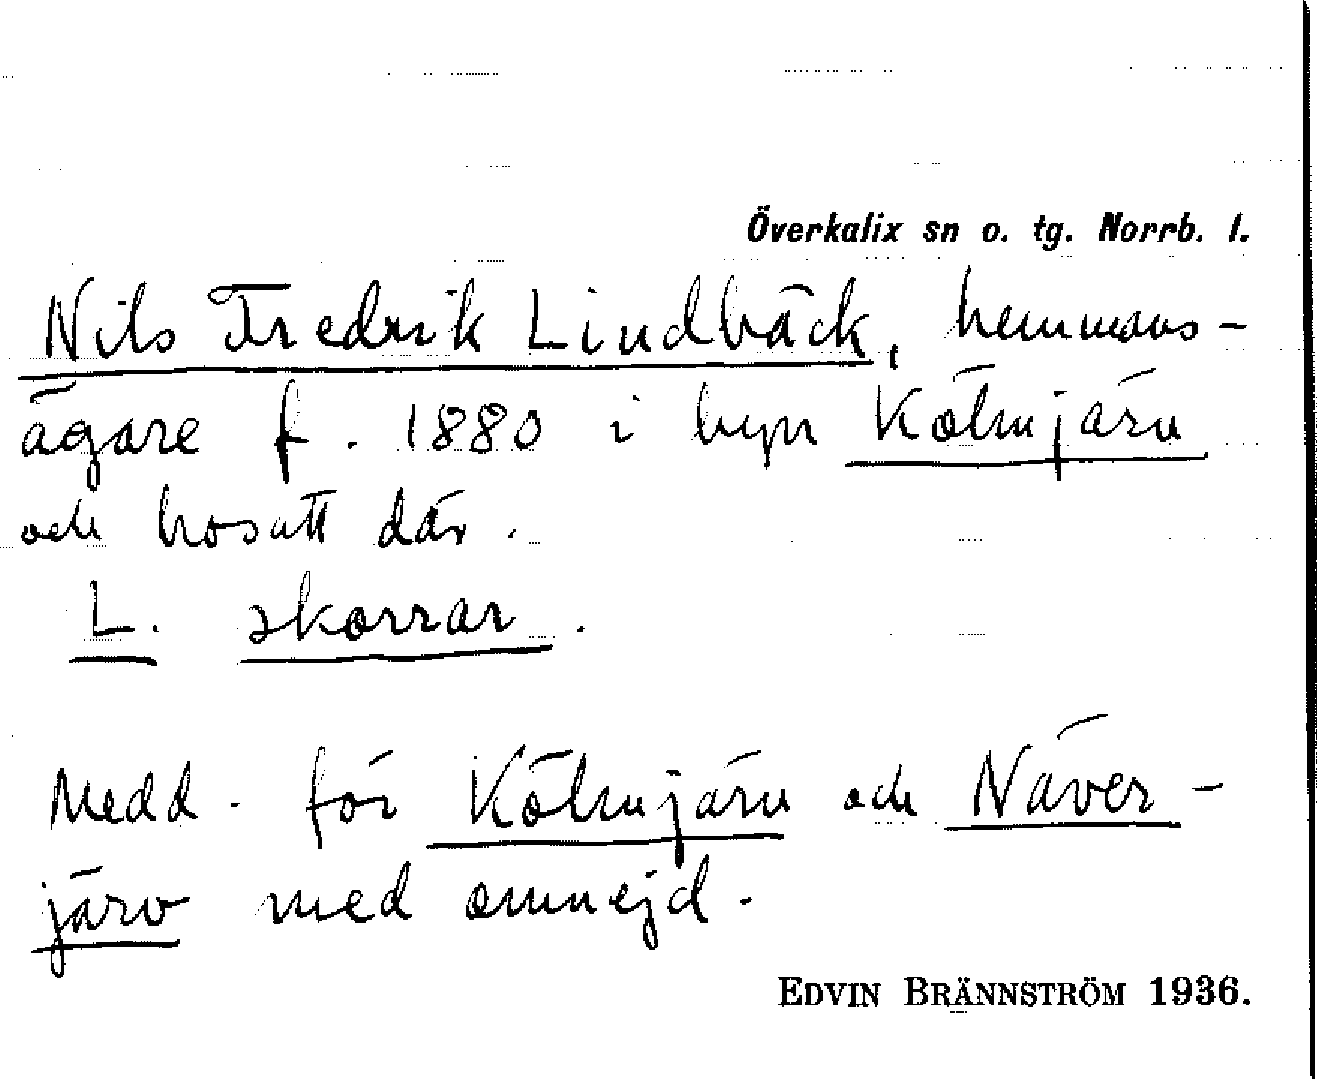 Överkalix sn o. tg. Norrb. l.
Nils Fredrik Lindbäck, hemmans-
ägare f. 1880 i byn Kölmjärv
och bosatt där.
L. skorrar.
Medd. för Kölmjärv och Näver-
järv med omnejd.
EDVIN BRÄNNSTRÖM 1936.